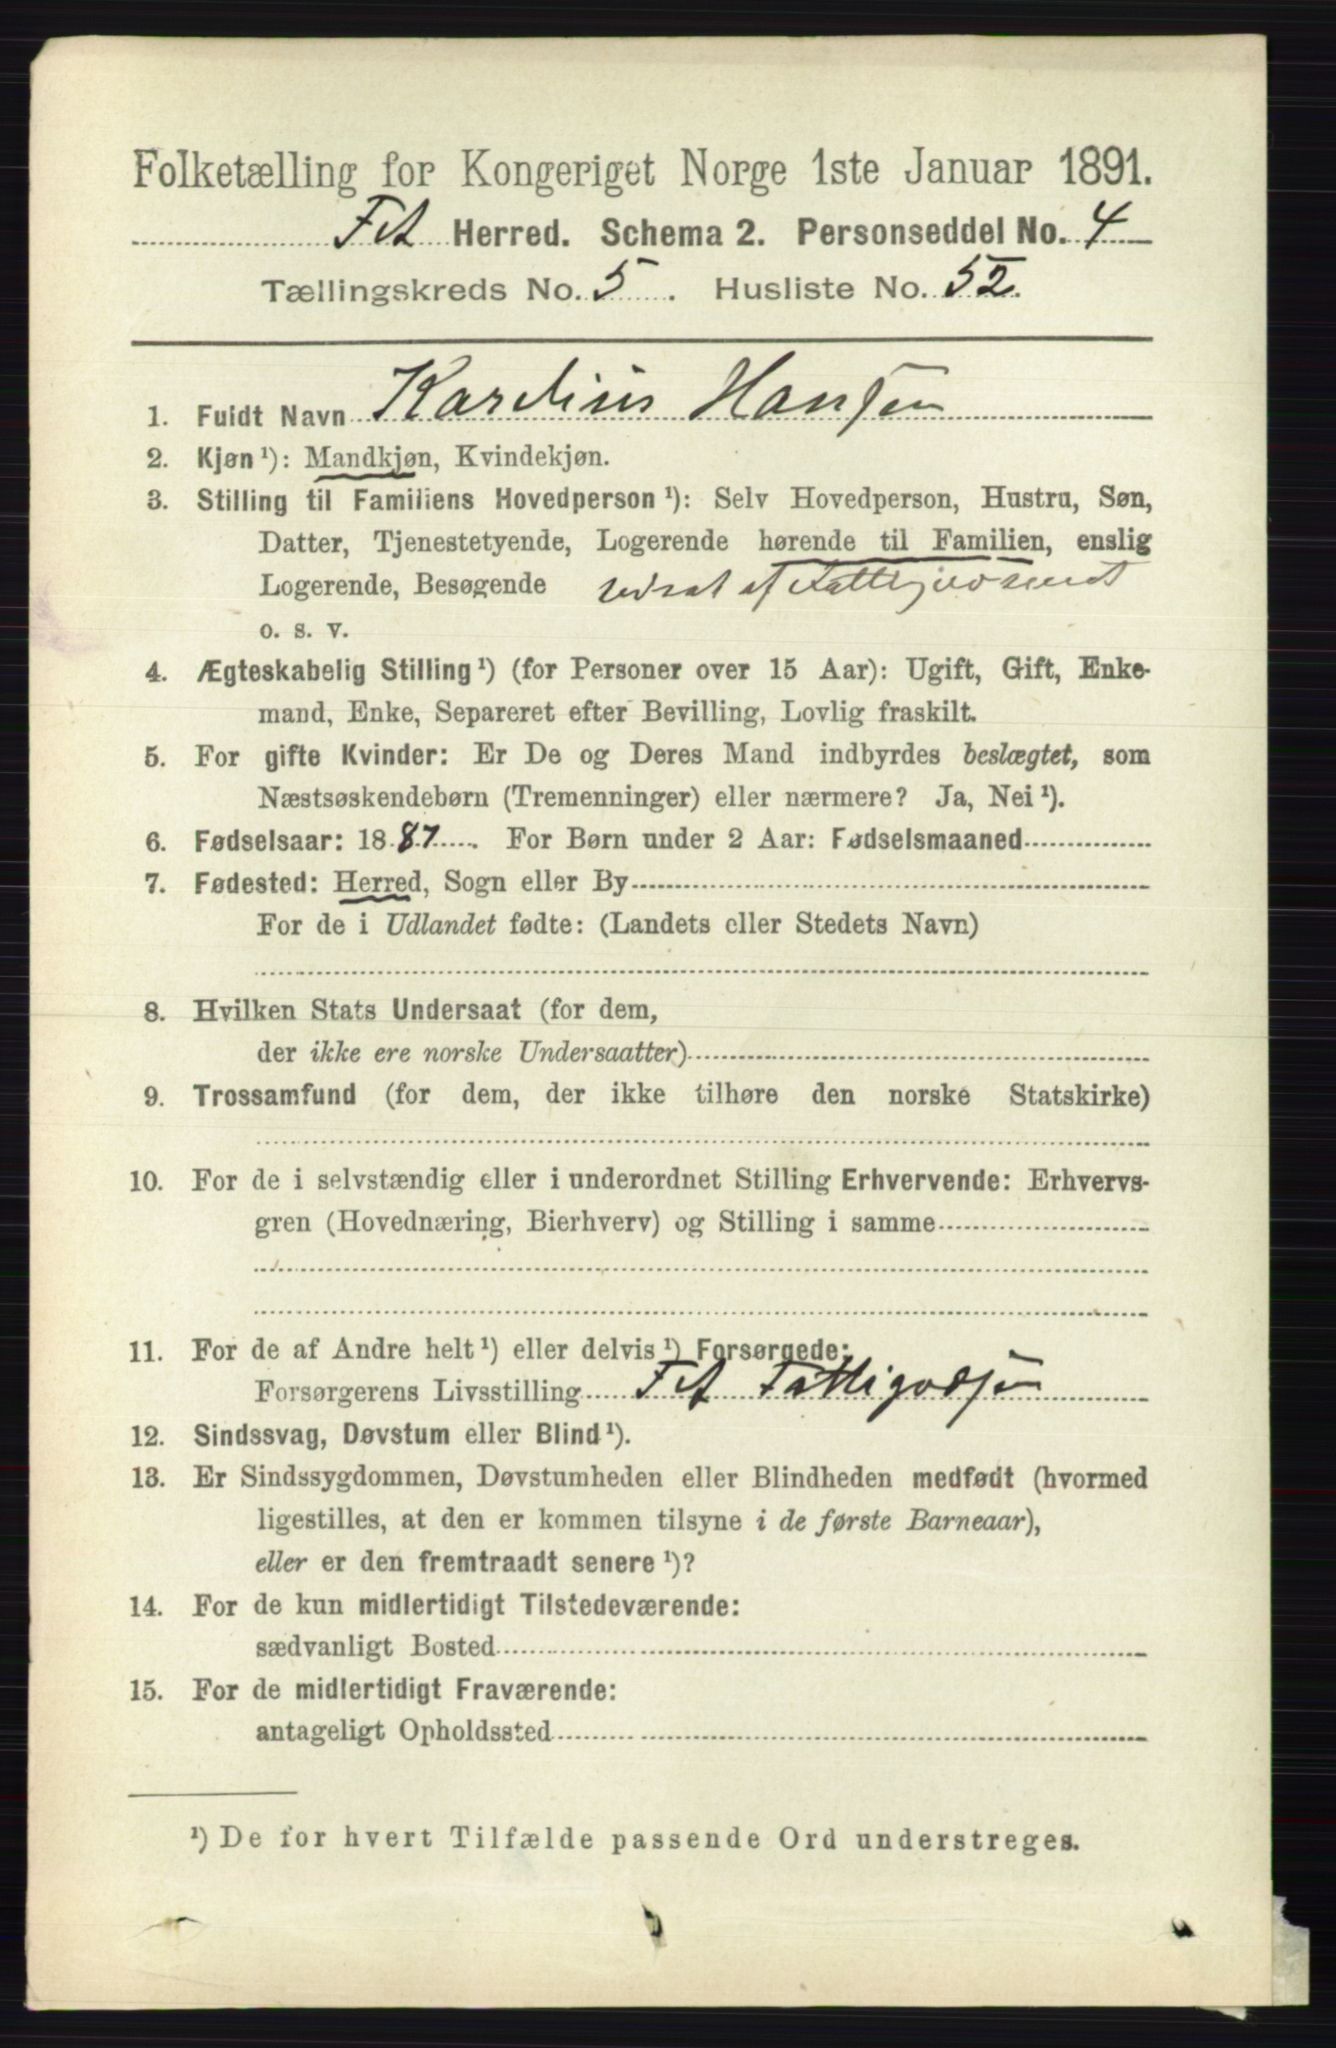 Folketælling for Kongeriget Norge 1ste Januar 1891.
Fet Herred. Schema 2. Personseddel No. 4
Tællingskreds No. 5. Husliste No. 52.
1. Fuldt Navn Karelius Hansen
2. Kjøn¹): Mandkjøn, Kvindekjøn.
3. Stilling til Familiens Hovedperson¹): Selv Hovedperson, Hustru, Søn,
Datter, Tjenestetyende, Logerende hørende til Familien, enslig
Logerende, Besøgende udsat af Fattigvæsenet
o. s. v.
4. Ægteskabelig Stilling¹) (for Personer over 15 Aar): Ugift, Gift, Enke-
mand, Enke, Separeret efter Bevilling, Lovlig fraskilt.
5. For gifte Kvinder: Er De og Deres Mand indbyrdes beslægtet, som
Næstsøskendebørn (Tremenninger) eller nærmere? Ja, Nei¹).
6. Fødselsaar: 1887. For Børn under 2 Aar: Fødselsmaaned
7. Fødested: Herred, Sogn eller By
For de i Udlandet fødte: (Landets eller Stedets Navn)
8. Hvilken Stats Undersaat (for dem,
der ikke ere norske Undersaatter)
9. Trossamfund (for dem, der ikke tilhøre den norske Statskirke)
10. For de i selvstændig eller i underordnet Stilling Erhvervende: Erhvervs-
gren (Hovednæring, Bierhverv) og Stilling i samme
11. For de af Andre helt¹) eller delvis¹) Forsørgede:
Forsørgerens Livsstilling Fet
12. Sindssvag, Døvstum eller Blind¹).
13. Er Sindssygdommen, Døvstumheden eller Blindheden medfødt (hvormed
ligestilles, at den er kommen tilsyne i de første Barneaar),
eller er den fremtraadt senere¹)?
14. For de kun midlertidigt Tilstedeværende:
sædvanligt Bosted
15. For de midlertidigt Fraværende:
antageligt Opholdssted
¹) De for hvert Tilfælde passende Ord understreges.